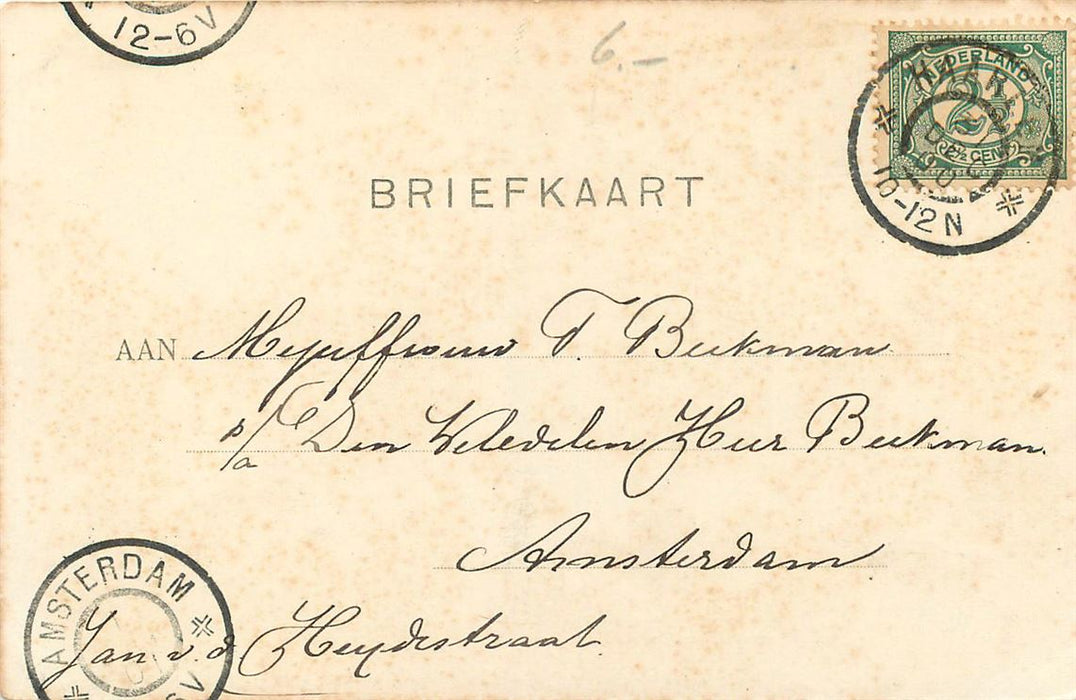 12-6V
6.-
NEDERLAND
2½
2½ CENT
HAARLEM
10-12N
BRIEFKAART
AAN Mejuffrouw T. Beekman
p/a Den Weledelen Heer Beekman.
Amsterdam
AMSTERDAM
Jan v. d. Heydestraat.
6V